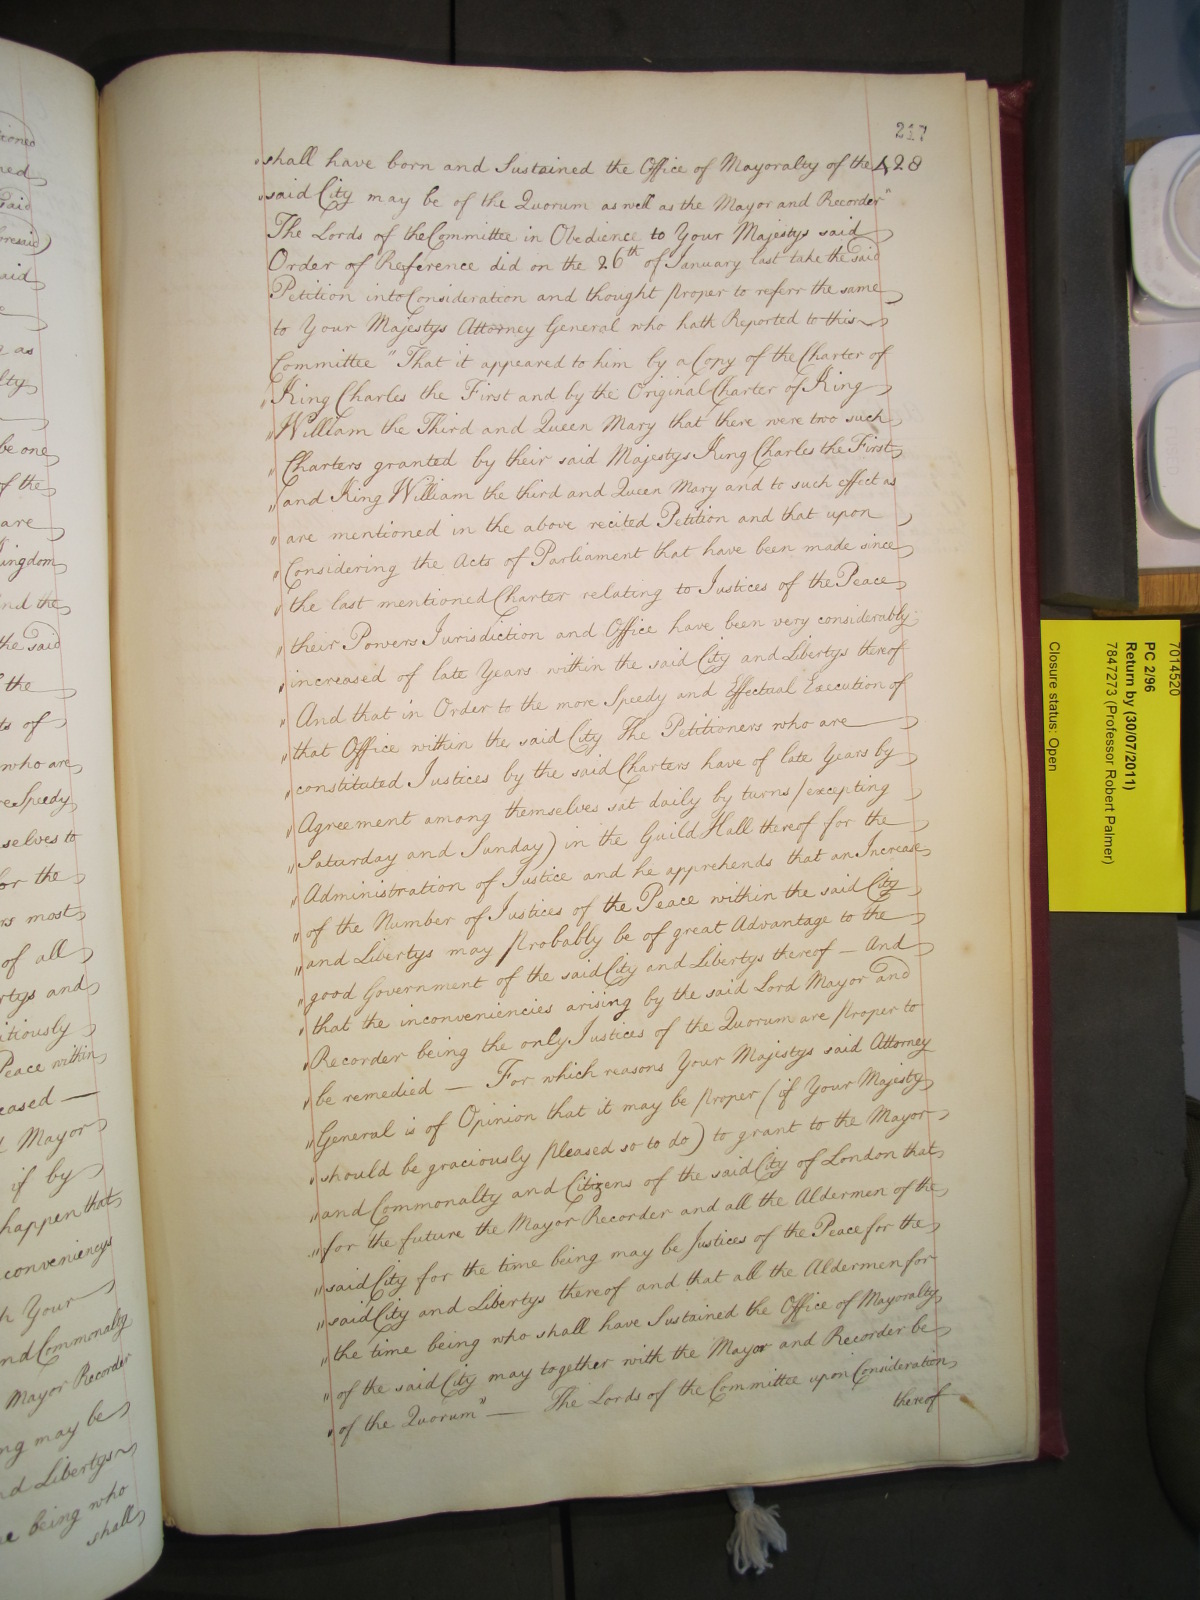 217
428
"shall have born and Sustained the Office of Mayoralty of the
"said City may be of the Quorum as well as the Mayor and Recorder"
The Lords of the Committee in Obedience to Your Majestys said
Order of Reference did on the 26th of January last take the said
Petition into Consideration and thought proper to referr the same
to Your Majestys Attorney General who hath Reported to this
Committee "That it appeared to him by a Copy of the Charter of
"King Charles the First and by the Original Charter of King
"William the Third and Queen Mary that there were two such
"Charters granted by their said Majestys King Charles the First
"and King William the third and Queen Mary and to such effect as
"are mentioned in the above recited Petition and that upon
"Considering the Acts of Parliament that have been made since
"the last mentioned Charter relating to Justices of the Peace
"their Powers Jurisdiction and Office have been very considerably
"increased of late Years within the said City and Libertys thereof
"And that in Order to the more Speedy and Effectual Execution of
"that Office within the said City The Petitioners who are
"constituted Justices by the said Charters have of late Years by
"Agreement among themselves sat daily by turns (excepting
"Saturday and Sunday) in the Guild Hall thereof for the
"Administration of Justice and he apprehends that an Increase
"of the Number of Justices of the Peace within the said City
"and Libertys may probably be of great Advantage to the
"good Government of the said City and Libertys thereof — And
"that the inconveniencies arising by the said Lord Mayor and
"Recorder being the only Justices of the Quorum are proper to
"be remedied — For which reasons Your Majestys said Attorney
"General is of Opinion that it may be proper (if Your Majesty
"should be graciously pleased so to do) to grant to the Mayor
"and Commonalty and Citizens of the said City of London that
"for the future the Mayor Recorder and all the Aldermen of the
"said City for the time being may be Justices of the Peace for the
"said City and Libertys thereof and that all the Aldermen for
"the time being who shall have Sustained the Office of Mayoralty
"of the said City may together with the Mayor and Recorder be
"of the Quorum" — The Lords of the Committee upon Consideration
thereof
said
as
be one
of the
are
Kingdom
and the
the said
the
of
who are
Speedy
selves to
for the
most
of all
and
Peace within
Mayor
if by
happen that
conveniencys
Your
and Commonalty
Mayor Recorder
may be
Libertys
being who
shall
7014520
PC 2/96
Return by (30/07/2011)
7847273 (Professor Robert Palmer)
Closure status: Open